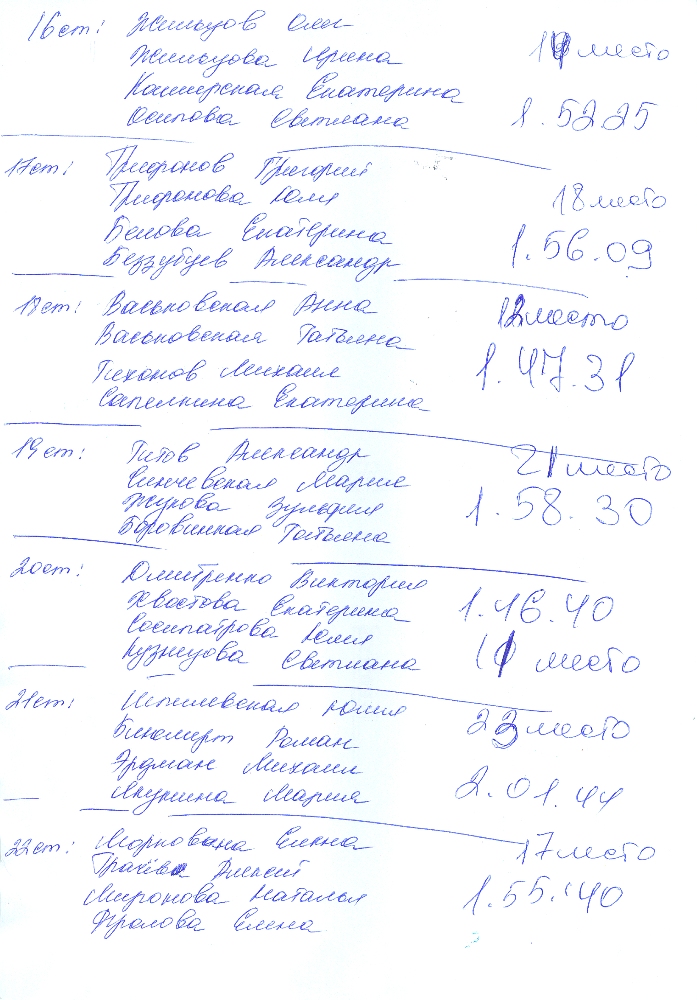 16ст: Жильцов Олег
Жильцова Ирина 14 место
Каширская Екатерина
Осипова Светлана 1.52.25
17ст: Трифонов Григорий
Трифонова Юлия 18 место
Белова Екатерина
Беззубцев Александр 1.56.09
18ст: Васьковская Анна 12 место
Васьковская Татьяна
Тихонов Михаил 1.47.31
Сапелкина Екатерина
19ст: Титов Александр 21 место
Синчевская Мария
Жукова Зульфия 1.58.30
Боровинская Татьяна
20ст: Дмитренко Виктория
Хвостова Екатерина 1.46.40
Сосипатрова Юлия
Кузнецова Светлана 11 место
21ст: Юлия 23 место
Роман
Эрдман Михаил
Якунина Мария 2.01.44
22ст: Елена 17 место
Грачёва Алексей
Миронова Наталья 1.55.40
Фролова Елена